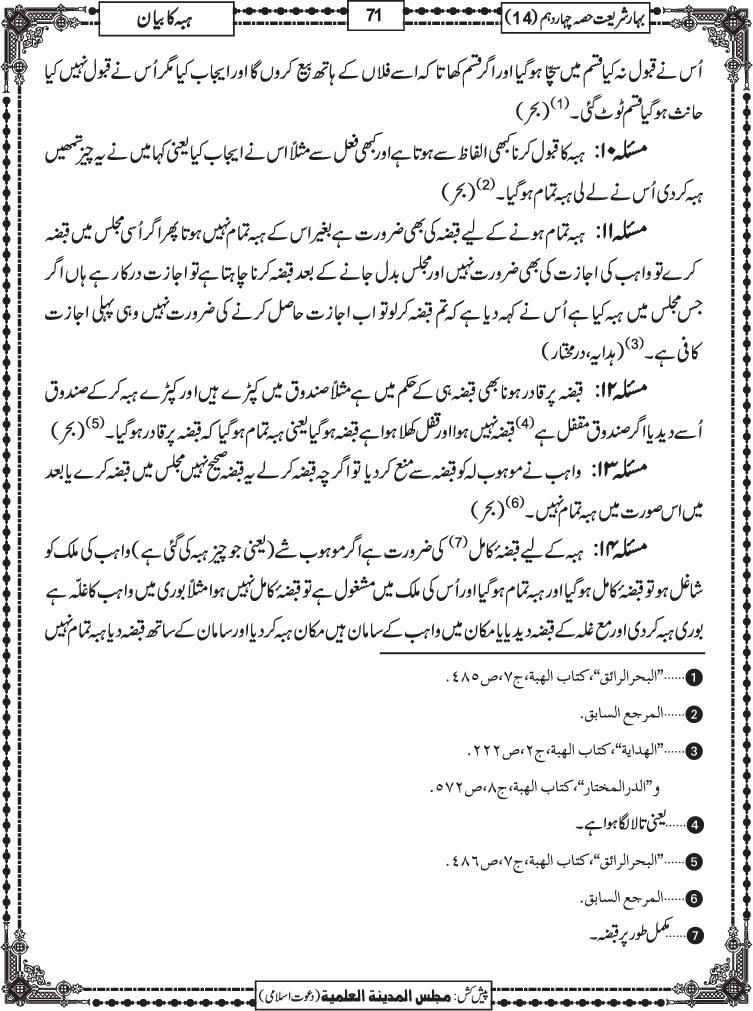 بہار شریعت حصہ چہاردہم (14)
71
ہبہ کا بیان
اُس نے قبول نہ کیا قسم میں سچا ہوگیا اور اگر قسم کھاتا کہ اسے فلاں کے ہاتھ بیع کروں گا اور ایجاب کیا مگر اُس نے قبول نہیں کیا
حانث ہوگیا قسم ٹوٹ گئی۔(1) (بحر)
مسئلہ ۱۰: ہبہ کا قبول کرنا کبھی الفاظ سے ہوتا ہے اور کبھی فعل سے مثلاً اس نے ایجاب کیا یعنی کہا میں نے یہ چیز تمھیں
ہبہ کر دی اُس نے لے لی ہبہ تمام ہوگیا۔(2) (بحر)
مسئلہ ۱۱: ہبہ تمام ہونے کے لیے قبضہ کی بھی ضرورت ہے بغیر اس کے ہبہ تمام نہیں ہوتا پھر اگر اُسی مجلس میں قبضہ
کرے تو واہب کی اجازت کی بھی ضرورت نہیں اور مجلس بدل جانے کے بعد قبضہ کرنا چاہتا ہے تو اجازت درکار ہے ہاں اگر
جس مجلس میں ہبہ کیا ہے اُس نے کہہ دیا ہے کہ تم قبضہ کرلو تو اب اجازت حاصل کرنے کی ضرورت نہیں وہی پہلی اجازت
کافی ہے۔(3) (ہدایہ، درمختار)
مسئلہ ۱۲: قبضہ پر قادر ہونا بھی قبضہ ہی کے حکم میں ہے مثلاً صندوق میں کپڑے ہیں اور کپڑے ہبہ کر کے صندوق
اُسے دیدیا اگر صندوق مقفل ہے(4) قبضہ نہیں ہوا اور قفل کھلا ہوا ہے قبضہ ہوگیا یعنی ہبہ تمام ہوگیا کہ قبضہ پر قادر ہوگیا۔(5) (بحر)
مسئلہ ۱۳: واہب نے موہوب لہ کو قبضہ سے منع کر دیا تو اگرچہ قبضہ کر لے یہ قبضہ صحیح نہیں مجلس میں قبضہ کرے یا بعد
میں اس صورت میں ہبہ تمام نہیں۔(6) (بحر)
مسئلہ ۱۴: ہبہ کے لیے قبضۂ کامل(7) کی ضرورت ہے اگر موہوب شے (یعنی جو چیز ہبہ کی گئی ہے) واہب کی ملک کو
شاغل ہو تو قبضۂ کامل ہوگیا اور ہبہ تمام ہوگیا اور اُس کی ملک میں مشغول ہے تو قبضۂ کامل نہیں ہوا مثلاً بوری میں واہب کا غلّہ ہے
بوری ہبہ کر دی اور مع غلہ کے قبضہ دیدیا یا مکان میں واہب کے سامان ہیں مکان ہبہ کر دیا اور سامان کے ساتھ قبضہ دیا ہبہ تمام نہیں
1......"البحرالرائق"، کتاب الهبة، ج۷، ص۴۸۵.
2......المرجع السابق.
3......"الهداية"، کتاب الهبة، ج۲، ص۲۲۲.
و"الدرالمختار"، کتاب الهبة، ج۸، ص۵۷۲.
4......یعنی تالا لگا ہوا ہے۔
5......"البحرالرائق"، کتاب الهبة، ج۷، ص۴۸۶.
6......المرجع السابق.
7......مکمل طور پر قبضہ۔
پیش کش: مجلس المدینة العلمیة (دعوت اسلامی)